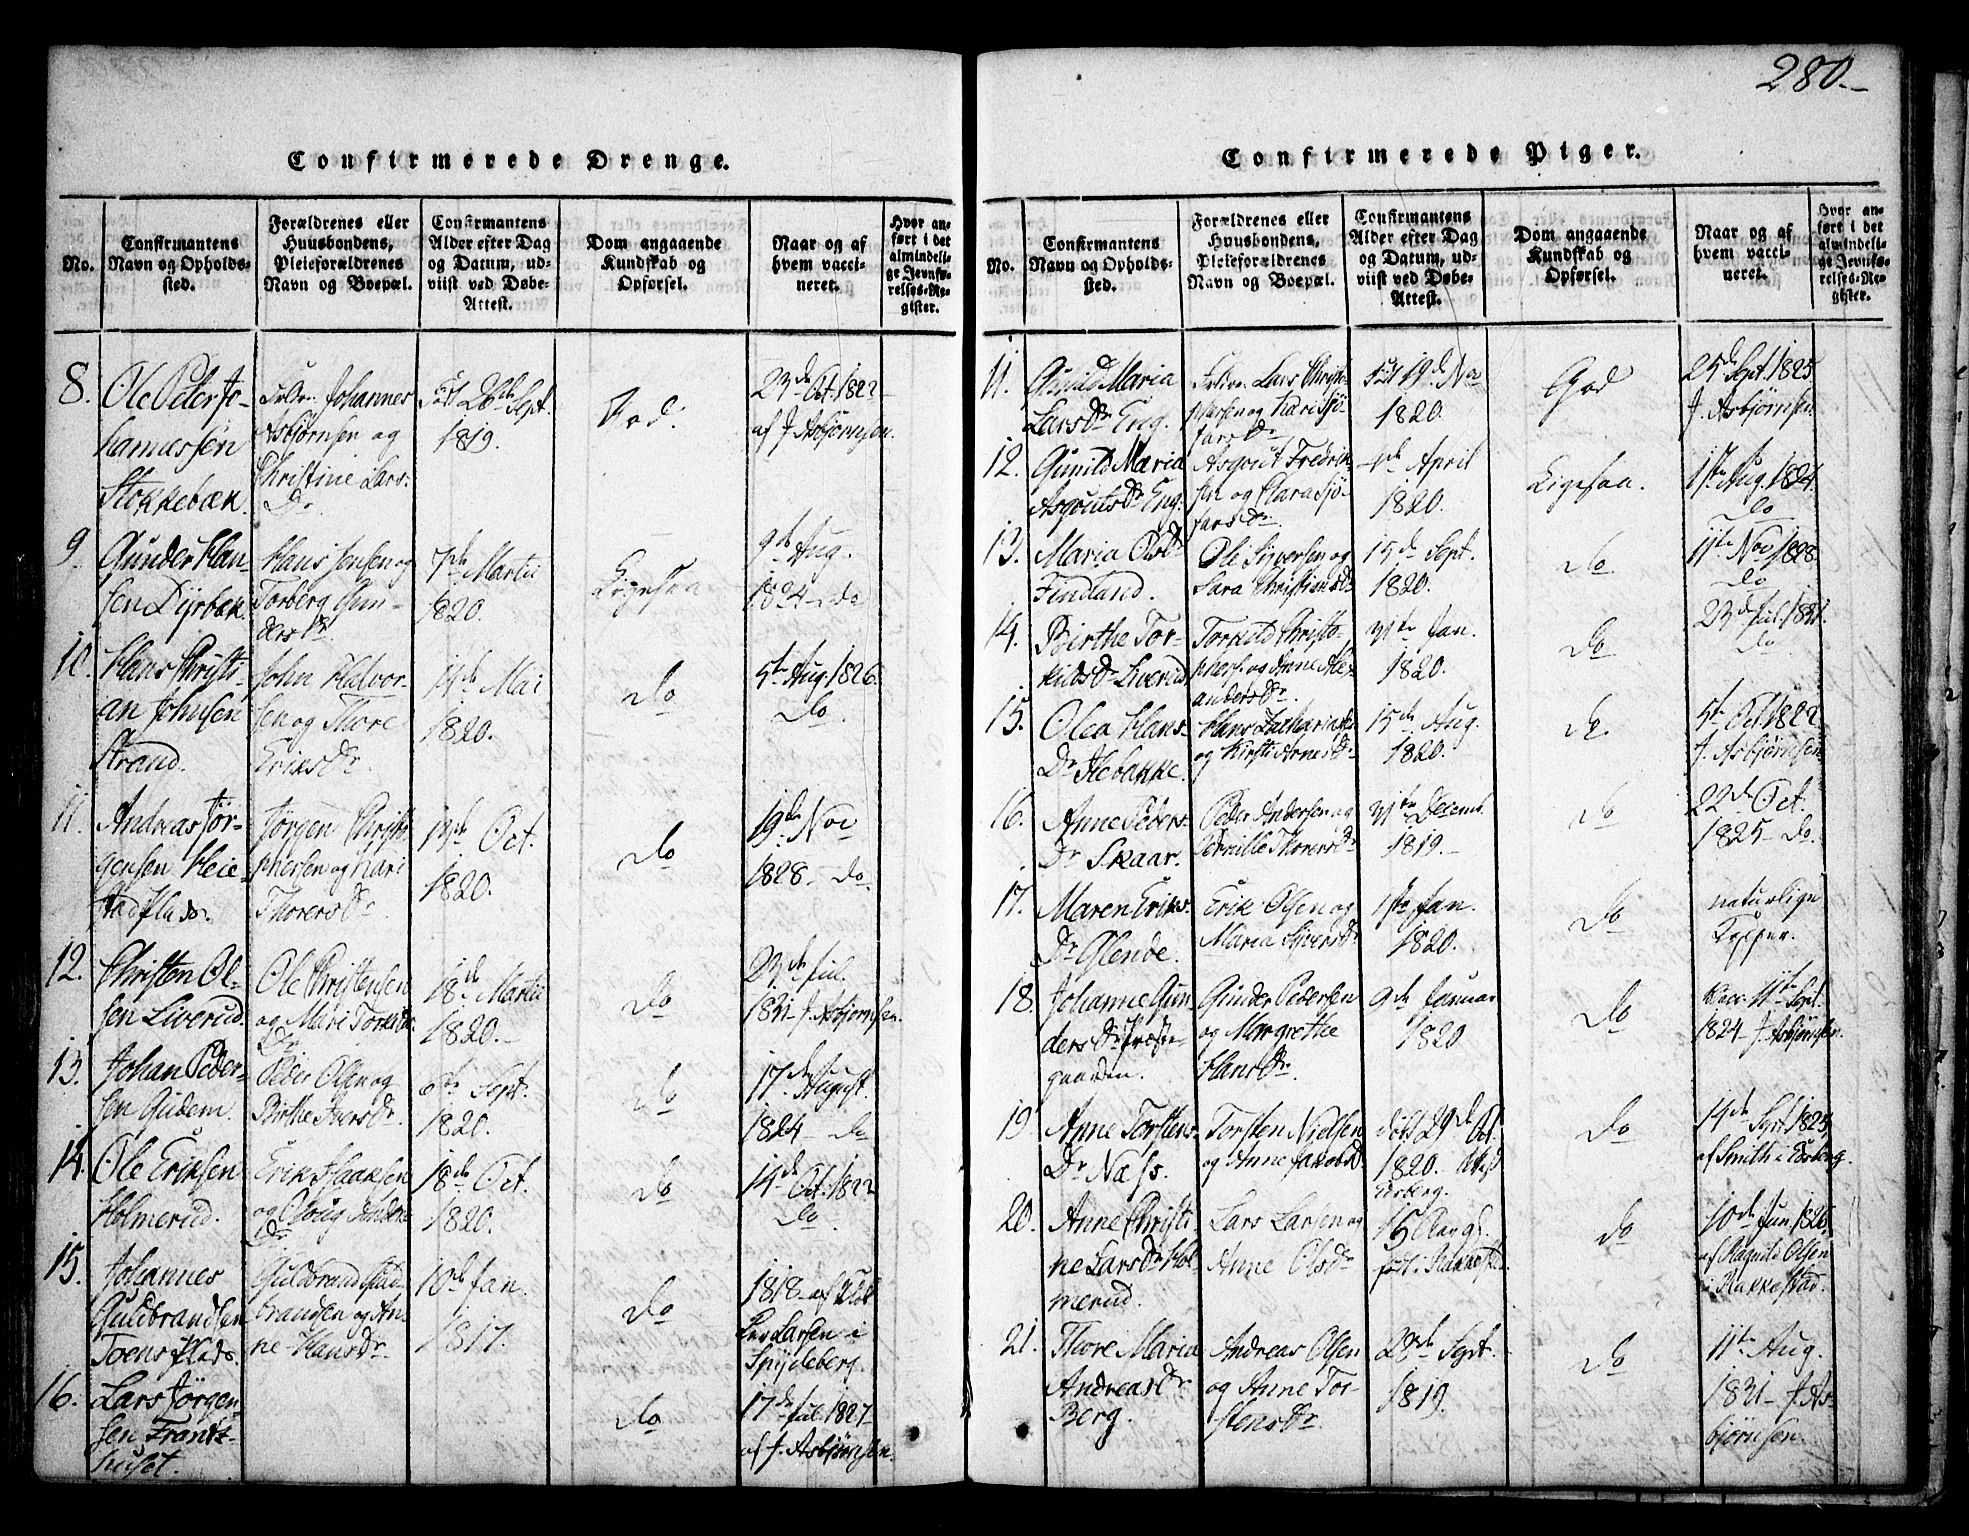 280.-
Confirmerede Drenge.
No.
Confirmantens
Navn og Opholds-
sted.
Forældrenes eller
Huusbondens,
Pleieforældrenes
Navn og Boepæl.
Confirmantens
Alder efter Dag
og Datum, ud-
viist ved Døbe-
Attest.
Dom angaaende
Kundskab og
Opførsel.
Naar og af
hvem vacci-
neret.
Hvor an-
ført i det
almindeli-
ge Jevnfø-
relses-Re-
gister.
8.
Ole Peter Jo-
hannessen
Stokkebæk.
Johannes
Asbjørnsen og
Christine Lars-
Dr.
28de Sept.
1819.
God.
23de Oct. 1822
af J. Asbjørnsen.
9.
Gunder Han-
sen Dyrbæk.
Hans Jensen og
Torberg Gun-
dersDr
7de Martii
1820.
Ligesaa
9de Aug.
1824 - Do
10.
Hans Christi-
an Johnsen
Strand.
John Halvor-
sen og Thore
EriksDr.
14de Mai
1820.
Do
5te Aug. 1826.
Do.
11.
Andreas Jør-
gensen Heie-
stadplads.
Jørgen Christo-
phersen og Kari
ThorersDr
13de Oct.
1820.
Do
19de Nov
1828 - Do.
12.
Christen Ol-
sen Liverud.
Ole Christensen
og Mari Torkilds
Dr
18de Martii
1820.-
Do
23de Jul.
1831 - J. Asbjørnsen.
13.
Johan Peder-
sen Gudem.
Peder Olsen og
Birthe IversDr
6te Sept.
1820.
Do
17de August.
1824 - Do
14.
Ole Eriksen
Holmerud.
Erik Isaaksen
og
Dr.
18de Oct.
1820.
Do
14de Oct. 1822
Do.
15.
Johannes
Guldbrandsen
Toensplads.
Guldbrand Guld-
brandsen og An-
ne HansDr
10de Jan.
1817.
Do
1818 - af
Lars Larsen i
Spydeberg.
16.
Lars Jørgen-
sen Frants-
huset.
Do
17de Jul. 1827
af J. Asbjørnsen.
Confirmerede Piger.
No.
Confirmantens
Navn og Opholds-
sted.
Forældrenes eller
Huusbondens,
Pleieforældrenes
Navn og Boepæl.
Confirmantens
Alder efter Dag
og Datum, ud-
viist ved Døbe-
Attest.
Dom angaaende
Kundskab og
Opførsel.
Naar og af
hvem vacci-
neret.
Hvor an-
ført i det
almindeli-
ge Jevnfø-
relses-Re-
gister.
11.
Gunild Maria
LarsDr Eng.
Lars Christo-
phersen og
Dr
19de Nov
1820.
God
25de Sept. 1825
J. Asbjørnsen.
12.
Gunild Maria
AsgoutsDr Eng.
Asgout Fredrik-
sen og
Dr.
April
1820.
Ligesaa.
17de Aug. 1824.
Do
13.
Maria OlsDr
Findland.
Ole Syversen og
Sara ChristiensDr
15de Sept.
1820.
Do.
11te Nov. 1828.
Do
14.
Birthe Tor-
kildsDr Liverud
Torkild Christo-
phers. og Anne Alex-
andersDr.
31te Jan.
1820.
Do
23de Jul. 1831.
Do
15.
Olea Hans-
Dr Holebakke.
Hans Zachariasen
og Kirsti ArnesDr
15de Aug.
1820.
Do.
5te Oct. 1822
J. Asbjørnsen
16.
Anne Peders-
Dr Skaar.
Peder Andersen og
Pernille ThorersDr
31te Decemb.
1819.-
Do
22de Oct.
1825 - Do.
17.
Maren Eriks-
Dr Glende.
Erik Olsen og
Maria SyversDr
1ste Jan.
1820.
Do
naturlige
Kopper.
18.
Johanne Gun-
dersDr Præste-
gaarden.
Gunder Pedersen
og Margrethe
HansDr.
9de Januar
1820
Do
vacc. 11te Sept.
1824 - J. Asbjørnsen.
19.
Anne Torstens-
Dr Næss.
Torsten Nielsen
og Anne JakobsDr
døbt 29de Oct.
1820. Attest
Eidsberg.
Do
14de Sept. 1825
af Smith i Edsberg.
20.
Anne Christi-
ne LarsDr Hol-
merud.
Lars Larsen og
Anne OlsDr
15 Aar gl.
født i Rakkestad
Do
10de Jun. 1826
af Ragnild Olsen
i Rakkestad.
21.
Thore Maria
AndreasDr
Berg.
Andreas Olsen
og Anne Tor-
stensDr.
28de Sept.
1819.
Do
11te Aug.
1831 - J. As-
bjørnsen.